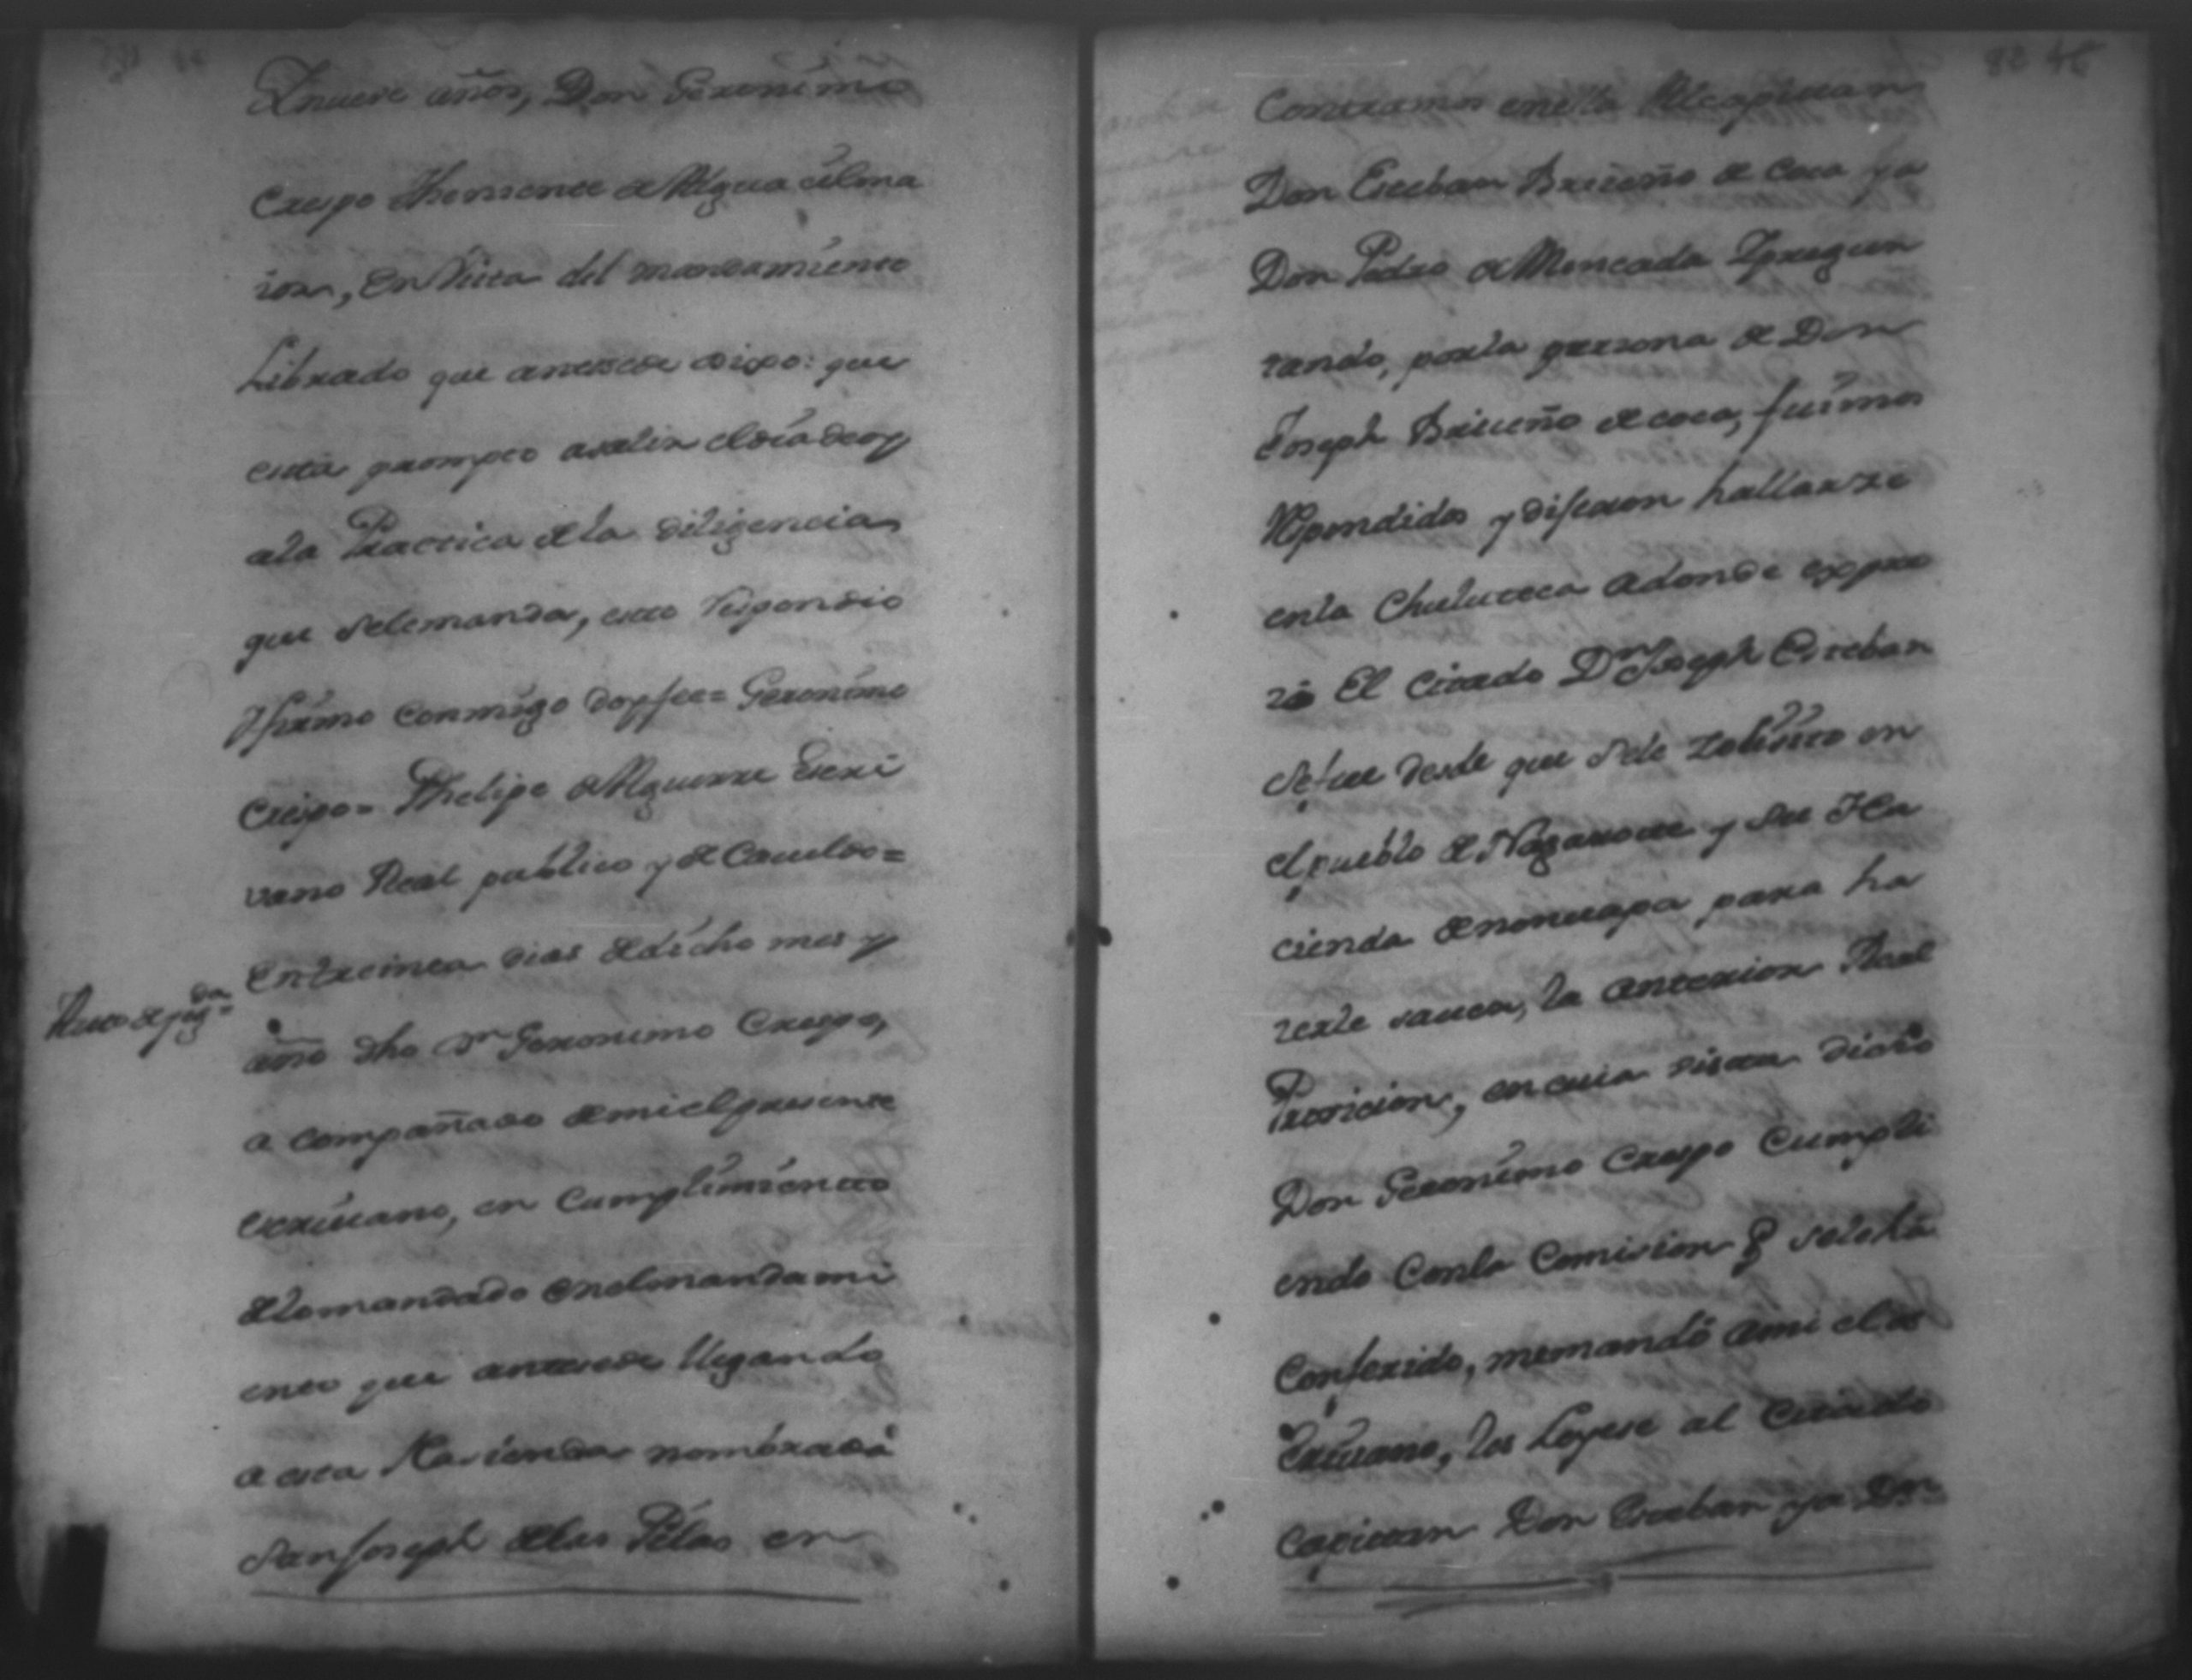 Ynueve años, Don Geronimo
Crespo Theniente de Alguacil ma
ior, en Vista del mandamiento
Librado que antesede dixo: que
está prompto asalir eldia deoy
ala Practica dela diligencia
que selemanda, esto Respondio
Yfirmo conmigo doyfee= Geronimo
Crespo= Phelipe de Aguerre Escri
vano Real publico y de Cavildo=
En treinta dias dedicho mes y
año dho Dn Geronimo Crespo,
a compañado demi elpresente
escrivano, en Cumplimiento
delomandado enelmandami
ento que antesede llegando
a esta Hacienda nombrada
San Joseph delas Pilas en
Contramos enella Al capitan
Don Esteban Briceño de Coca ya
Don Pedro de Moncada Ypregun
tando, porla persona de Don
Joseph Briceño de coca, fuimos
Respondidos y dijeron hallarze
enla Chuluteca adonde expre
zó El citado Dn Joseph Esteban
sefue desde que sele zolisito en
elpueblo de Nagarote y su Ha
cienda de para ha
zerle saver, la anterior Real
Provicion, en cuia vista dicho
Don Geronimo Crespo Cumpli
endo Conla Comision q selehá
Conferido, memandó ami el es
Crivano, les Leyese al Citado
Capitan Don Esteban ya Dn